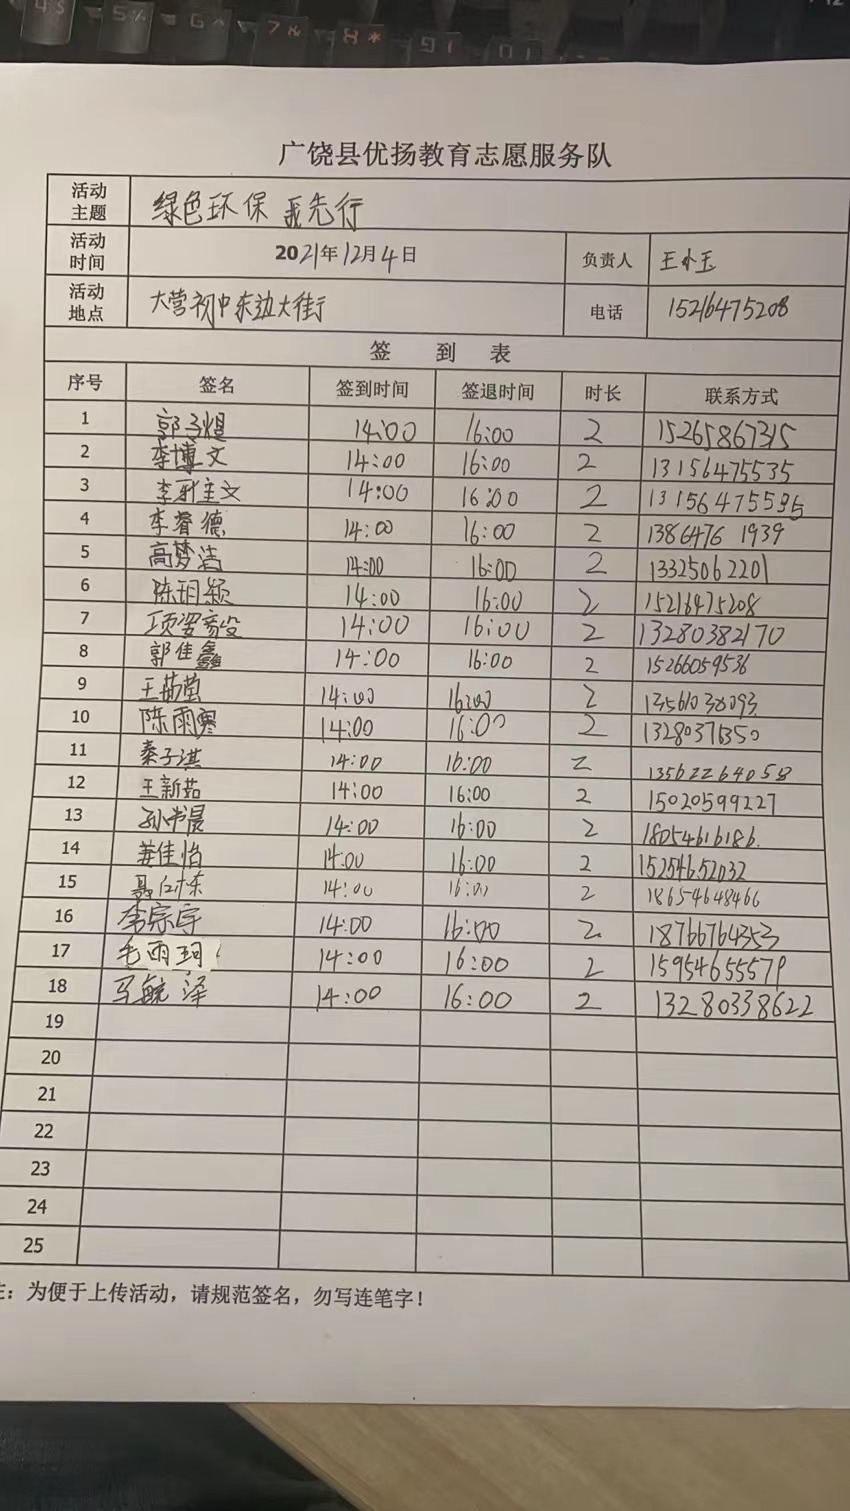 广饶县优扬教育志愿服务队
活动主题 绿色环保 我先行
活动时间 2021年12月4日 负责人 王小玉
活动地点 大营初中东边大街行 电话 15216475208
签到表
序号 签名 签到时间 签退时间 时长 联系方式
1 郭子煜 14:00 16:00 2 15265867315
2 李博文 14:00 16:00 2 13156475535
3 14:00 16:00 2 13156475535
4 李睿德 14:00 16:00 2 13864761939
5 高梦洁 14:00 16:00 2 13325062201
6 陈玥颖 14:00 16:00 2 15216475208
7 14:00 16:00 2 13280382170
8 郭佳鑫 14:00 16:00 2 15266059536
9 14:00 16:00 2 13561038093
10 陈雨寒 14:00 16:00 2 13280376350
11 秦子淇 14:00 16:00 2 13562264058
12 王新茹 14:00 16:00 2 15020599227
13 孙书晨 14:00 16:00 2 18054616186
14 姜佳怡 14:00 16:00 2 15254652032
15 14:00 16:00 2 18654648466
16 李宗宇 14:00 16:00 2 18766764353
17 毛雨珂 14:00 16:00 2 15954655579
18 马毓泽 14:00 16:00 2 13280338622
19
20
21
22
23
24
25
注：为便于上传活动，请规范签名，勿写连笔字！